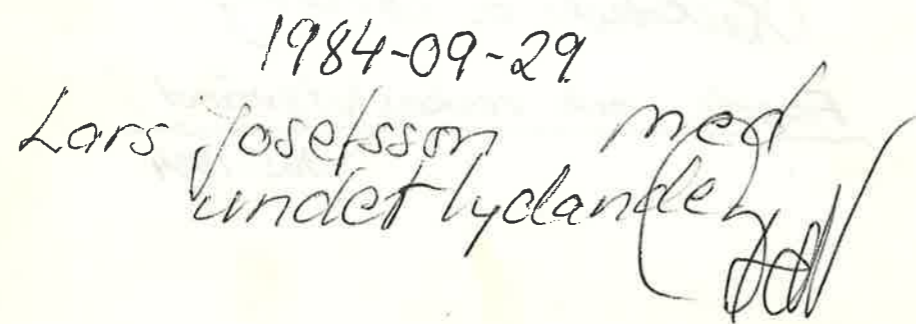 1984-09-29
Lars Josefsson med
underlydande